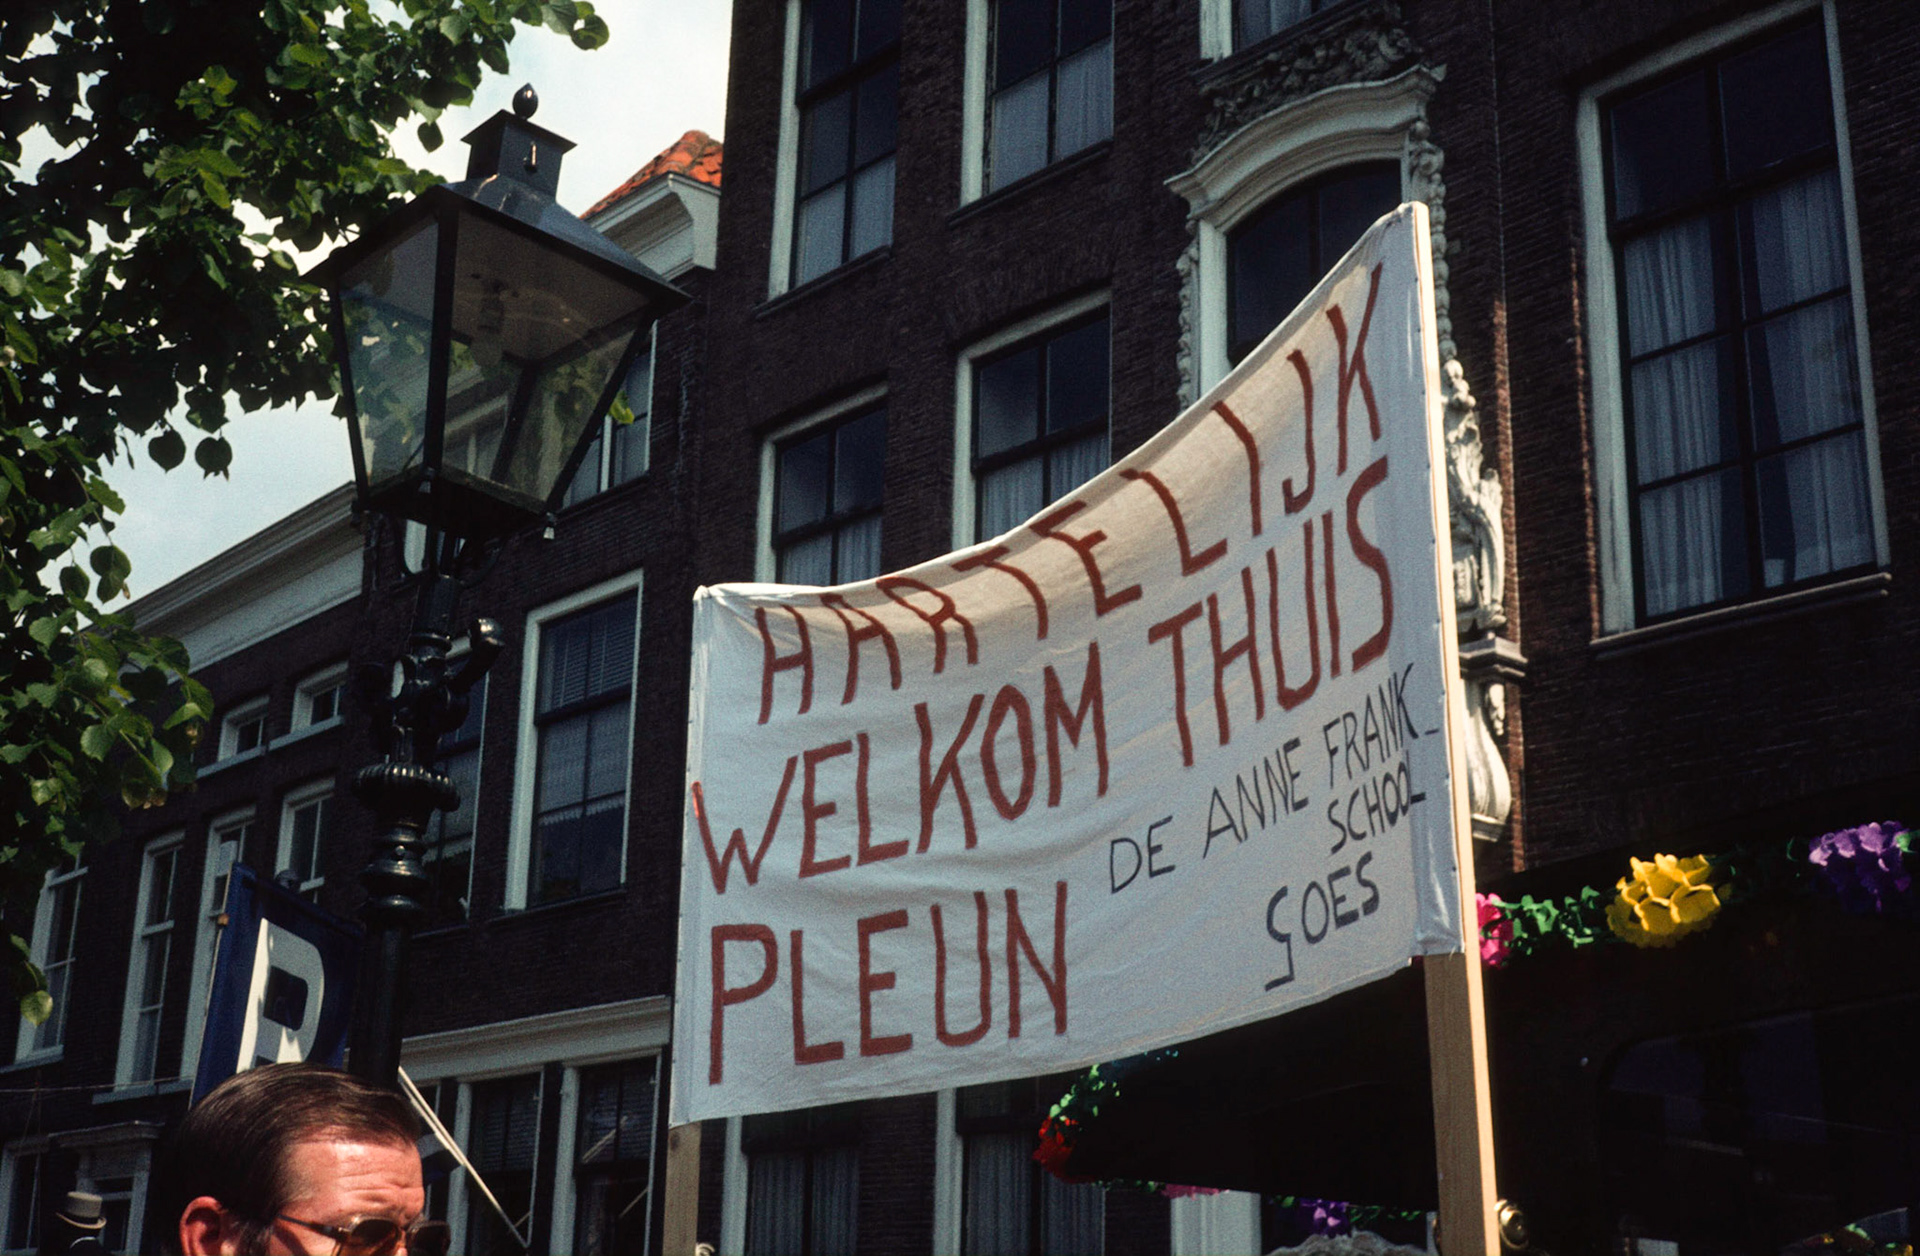 HARTELIJK
WELKOM THUIS
PLEUN
DE ANNE FRANK-
SCHOOL
GOES
P